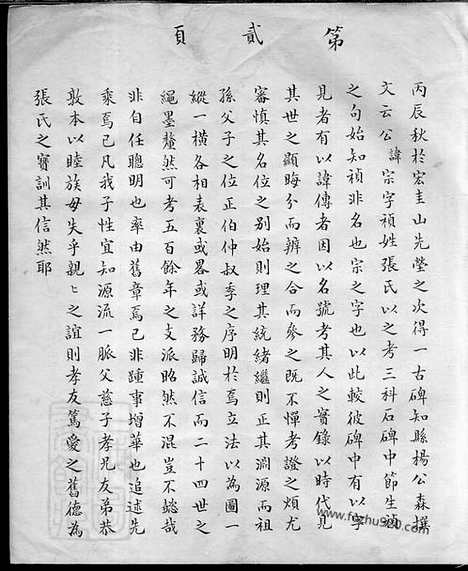 第貳頁
丙辰秋於宏圭山先塋之次得一古碑知縣楊公森撰
文云公諱宗字禎姓張氏以之考三科石碑中節生禎
之句始知禎非名也宗之字也以此較彼碑中有以字
見者有以諱傳者因以名號考其人之實錄以時代見
其世之顯晦分而辨之合而參之既不憚考證之煩尤
審慎其名位之別始則理其統緒繼則正其淵源而祖
孫父子之位正伯仲叔季之序明於焉立法以為圖一
縱一橫各相表裏或畧或詳務歸誠信而二十四世之
繩墨釐然可考五百餘年之支派昭然不混豈不懿哉
非自任聰明也率由舊章焉已非踵事增華也追述先
乘焉已凡我子性宜知源流一脈父慈子孝兄友弟恭
敦本以睦族毋失乎親〻之誼則孝友篤愛之舊德為
張氏之寶訓其信然耶
www.fzhu980.com